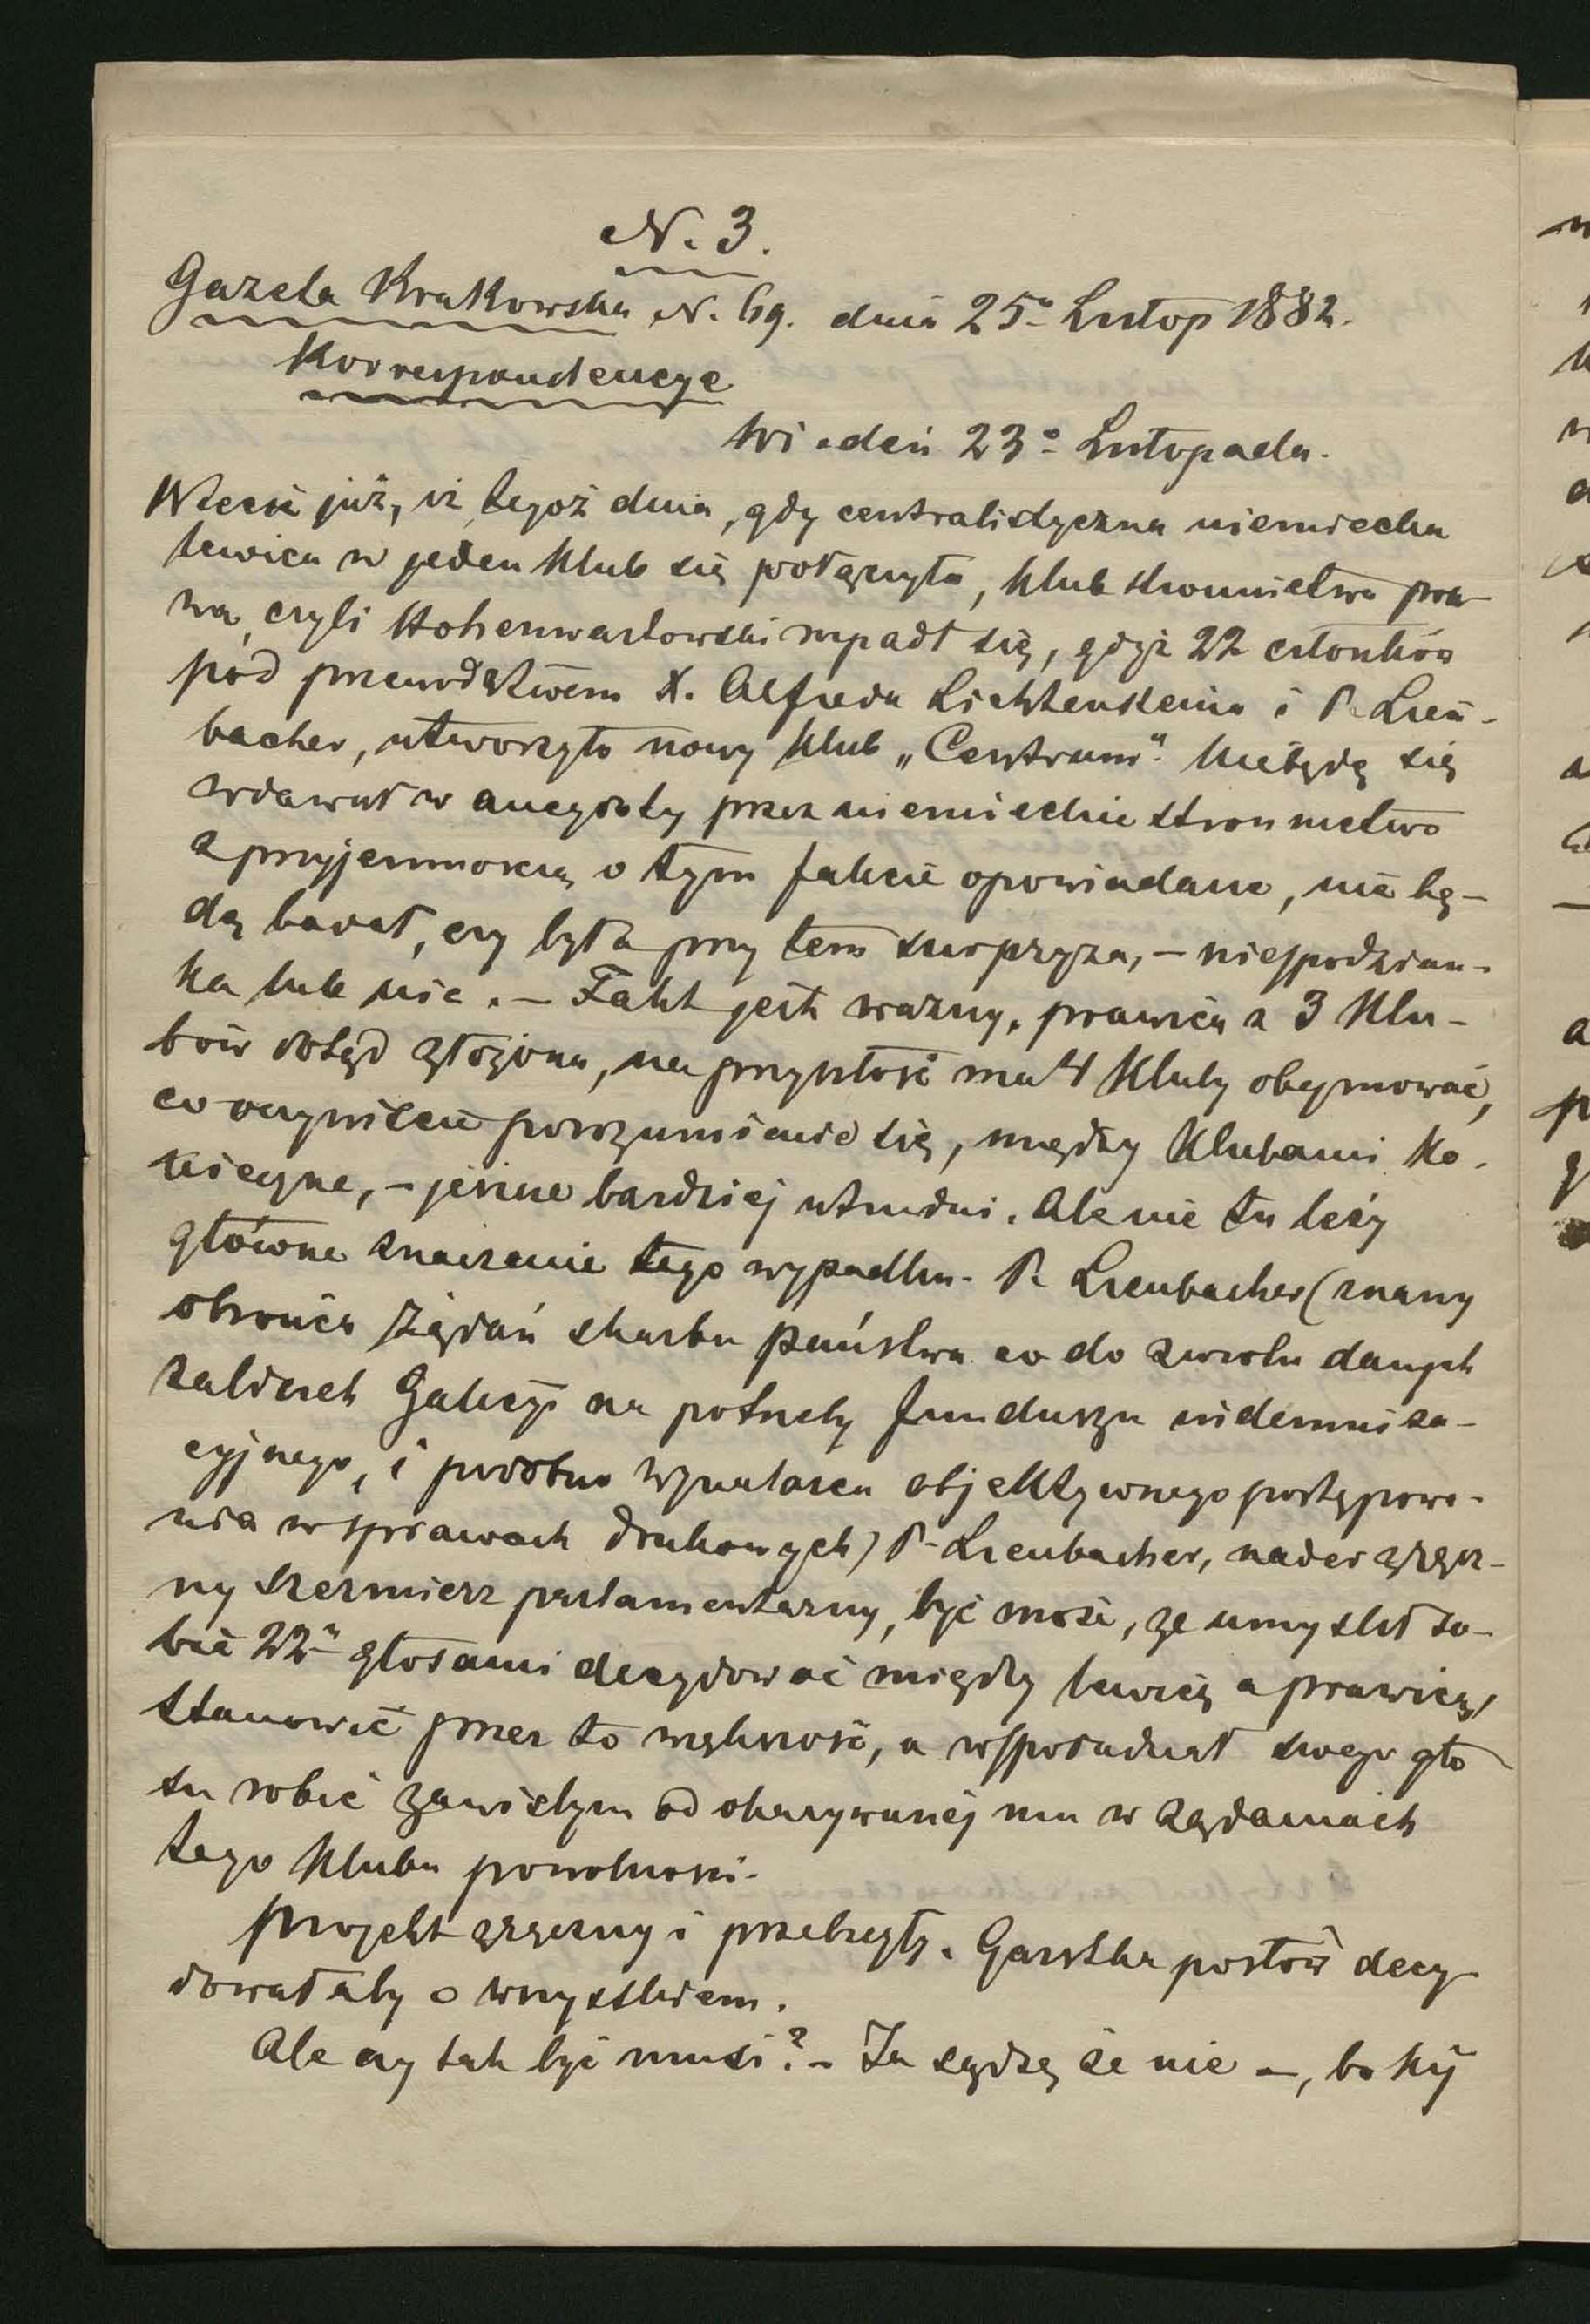 N. 3.
Gazeta Krakowska N. 69. dnia 25º Listop 1882.
Korrespondencye
Wiedeń 23º Listopada.
Wiecie już, iż tegoż dnia, gdy centralistyczna niemiecka
lewica w jeden klub się połączyła, klub stronnictwa pra-
wa, czyli Hohenwartowski rozpadł się, gdyż 22 członków
pod przewodztwem X. Alfreda Lichtensteina i P. Lien-
bacher, utworzyło nowy klub „Centrum". Nie będę się
wdawał w anegdoty przez niemieckie stronnictwo
z przyjemnością o tym fakcie opowiadane, nie bę-
dę badał, czy była przy tem surpryza, – niespodzian-
ka lub nie. – Fakt jest ważny, prawica z 3 klu-
bów dotąd złożona, na przyszłość ma 4 kluby obejmować,
co oczywiście porozumienie się, między klubami ko-
nieczne, – jeszcze bardziej utrudni. Ale nie tu leży
główne znaczenie tego wypadku. P. Lienbacher (znany
obrońca żądań skarbu państwa co do zwrotu danych
zaliczek Galicyi na potrzeby funduszu indemniza-
cyjnego, i podobno wynalazca objektywnego postępowa-
nia w sprawach drukowych) P. Lienbacher, nader zręcz-
ny szermierz parlamentarny, być może, że umyślił so-
bie 22ª głosami decydować między lewicą a prawicą,
stanowić przez to większość, a współudział swego gło
su robić zawisłym od okazywanej mu w żądaniach
tego klubu powolności.
Projekt zręczny i przebiegły. Garstka posłów decy-
dowałaby o wszystkiem.
Ale czy tak być musi? – Ja sądzę że nie –, bo kij